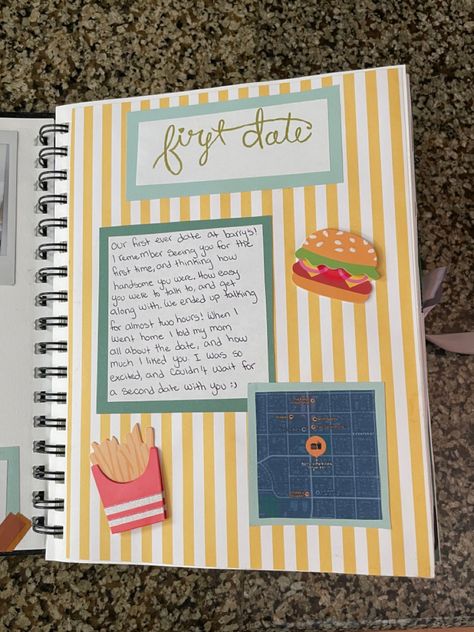 first date
Our first ever date at barrys!
I remember seeing you for the
first time, and thinking how
handsome you were. How easy
you were to talk to, and get
along with. We ended up talking
for almost two hours! When I
went home I told my mom
all about the date, and how
much I liked you. I was so
excited, and couldn't wait for
a second date with you :)